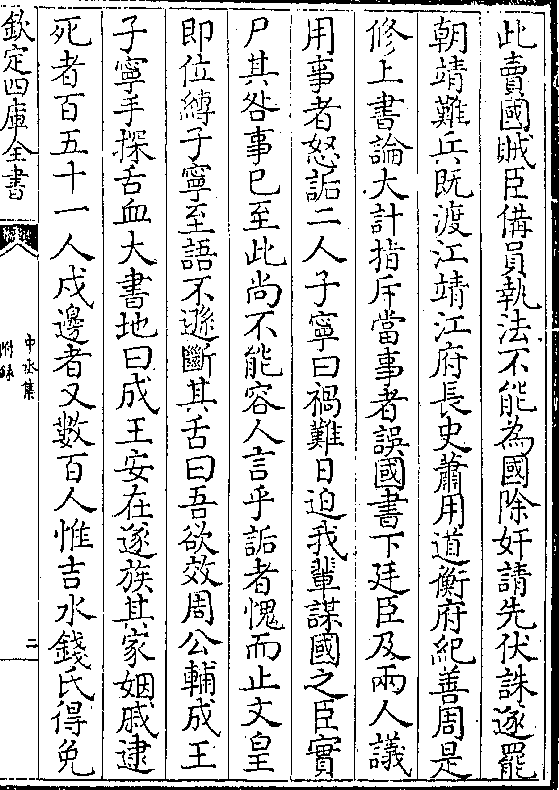 此賣國賊臣備員執法不能為國除奸請先伏誅遂罷
朝靖難兵既渡江靖江府長史蕭用道衡府紀善周是
修上書論大計指斥當事者誤國書下廷臣及兩人議
用事者怒詬二人子寧曰禍難日迫我輩謀國之臣實
尸其咎事已至此尚不能容人言乎詬者愧而止文皇
即位縛子寧至語不遜斷其舌曰吾欲效周公輔成王
子寧手探舌血大書地曰成王安在遂族其家姻戚逮
死者百五十一人戍邊者又數百人惟吉水錢氏得免
欽定四庫全書
中丞集
附錄
二